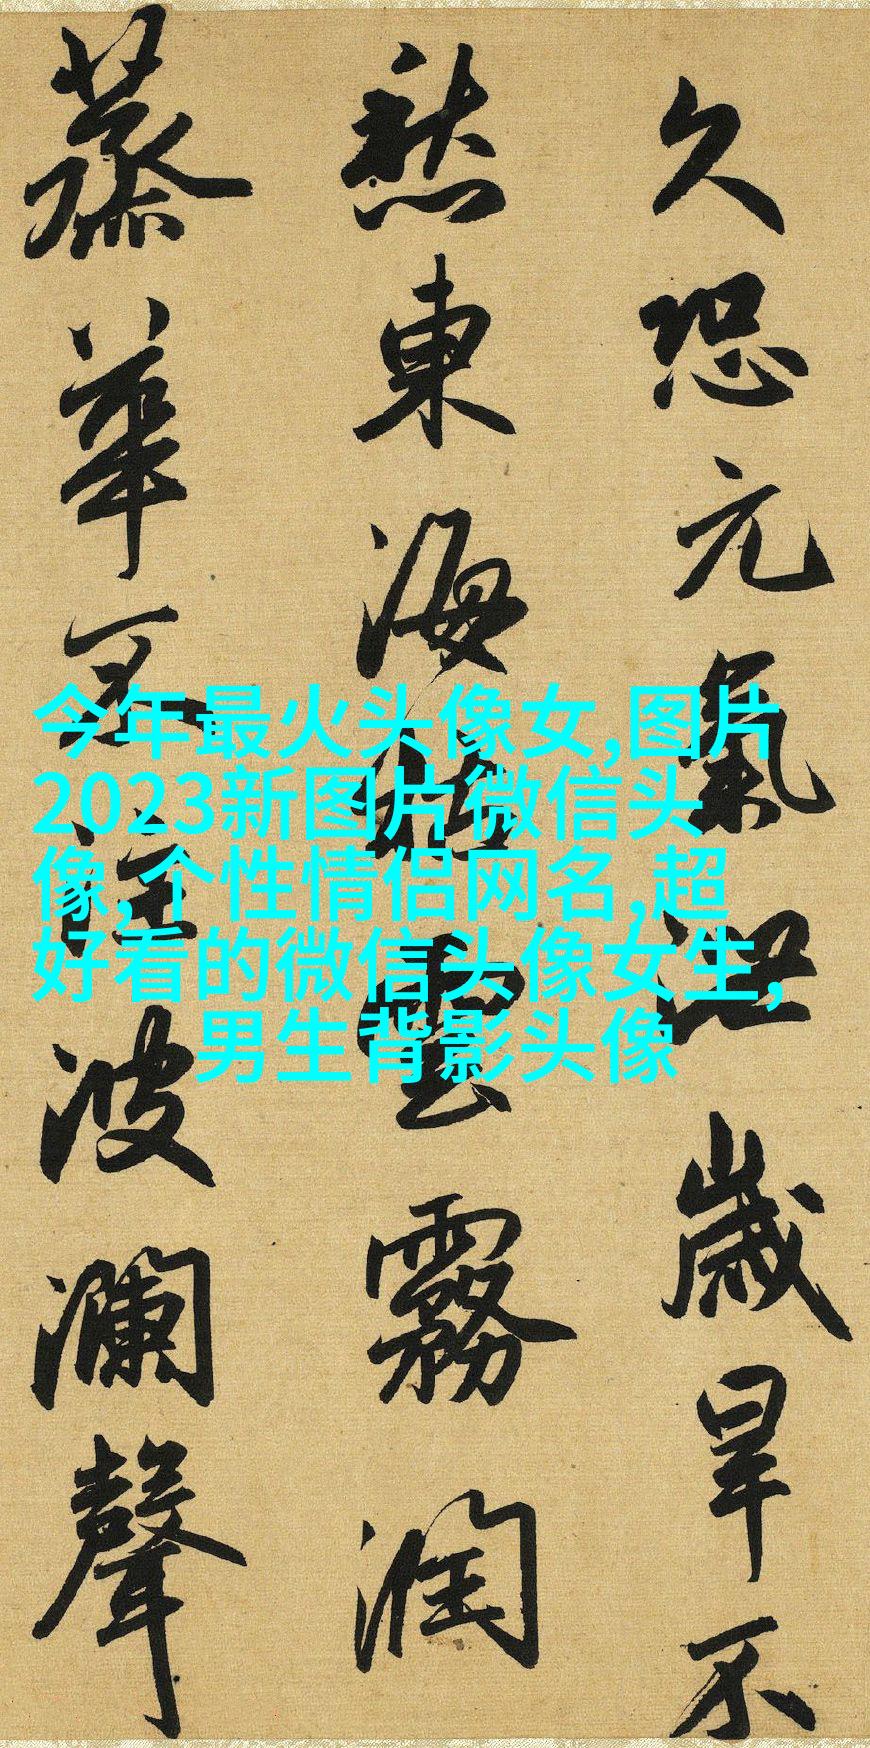 久恐元氣泄歲旱不
愁東海枯雲霧潤
蒸華不注波瀾聲
今年最火头像女,图片
2023新图片微信头
像,个性情侣网名,超
好看的微信头像女生,
男生背影头像